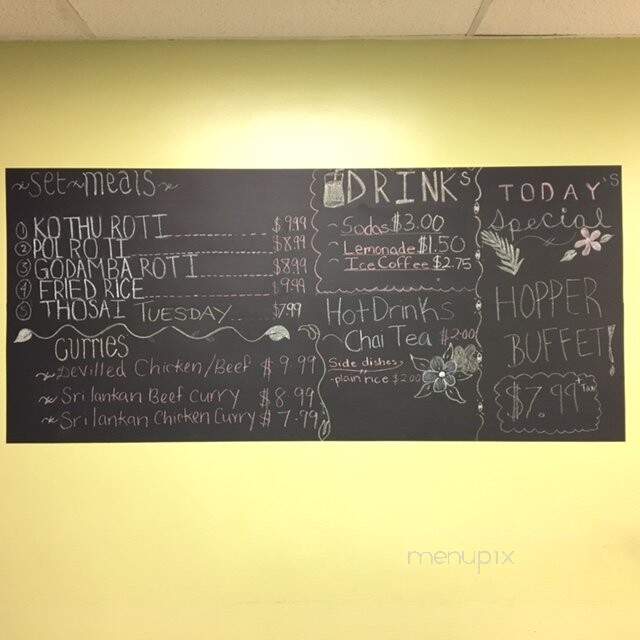 ~Set~meals~
1 KOTHU ROTI $9.99
2 POL ROTI $8.99
3 GODAMBA ROTI $8.99
4 FRIED RICE 9.99
5 THOSAI TUESDAY $7.99
Curries
~Devilled Chicken/Beef $9.99
~Sri lankan Beef Curry $8.99
~Sri lankan Chicken Curry $7.99
DRINKS
~Sodas $3.00
~Lemonade $1.50
~Ice Coffee $2.75
Hot Drinks
~Chai Tea $2.00
Side dishes
-plain rice $2.00
TODAY'S
Special
HOPPER
BUFFET!
$7.99 + TAX
menupix